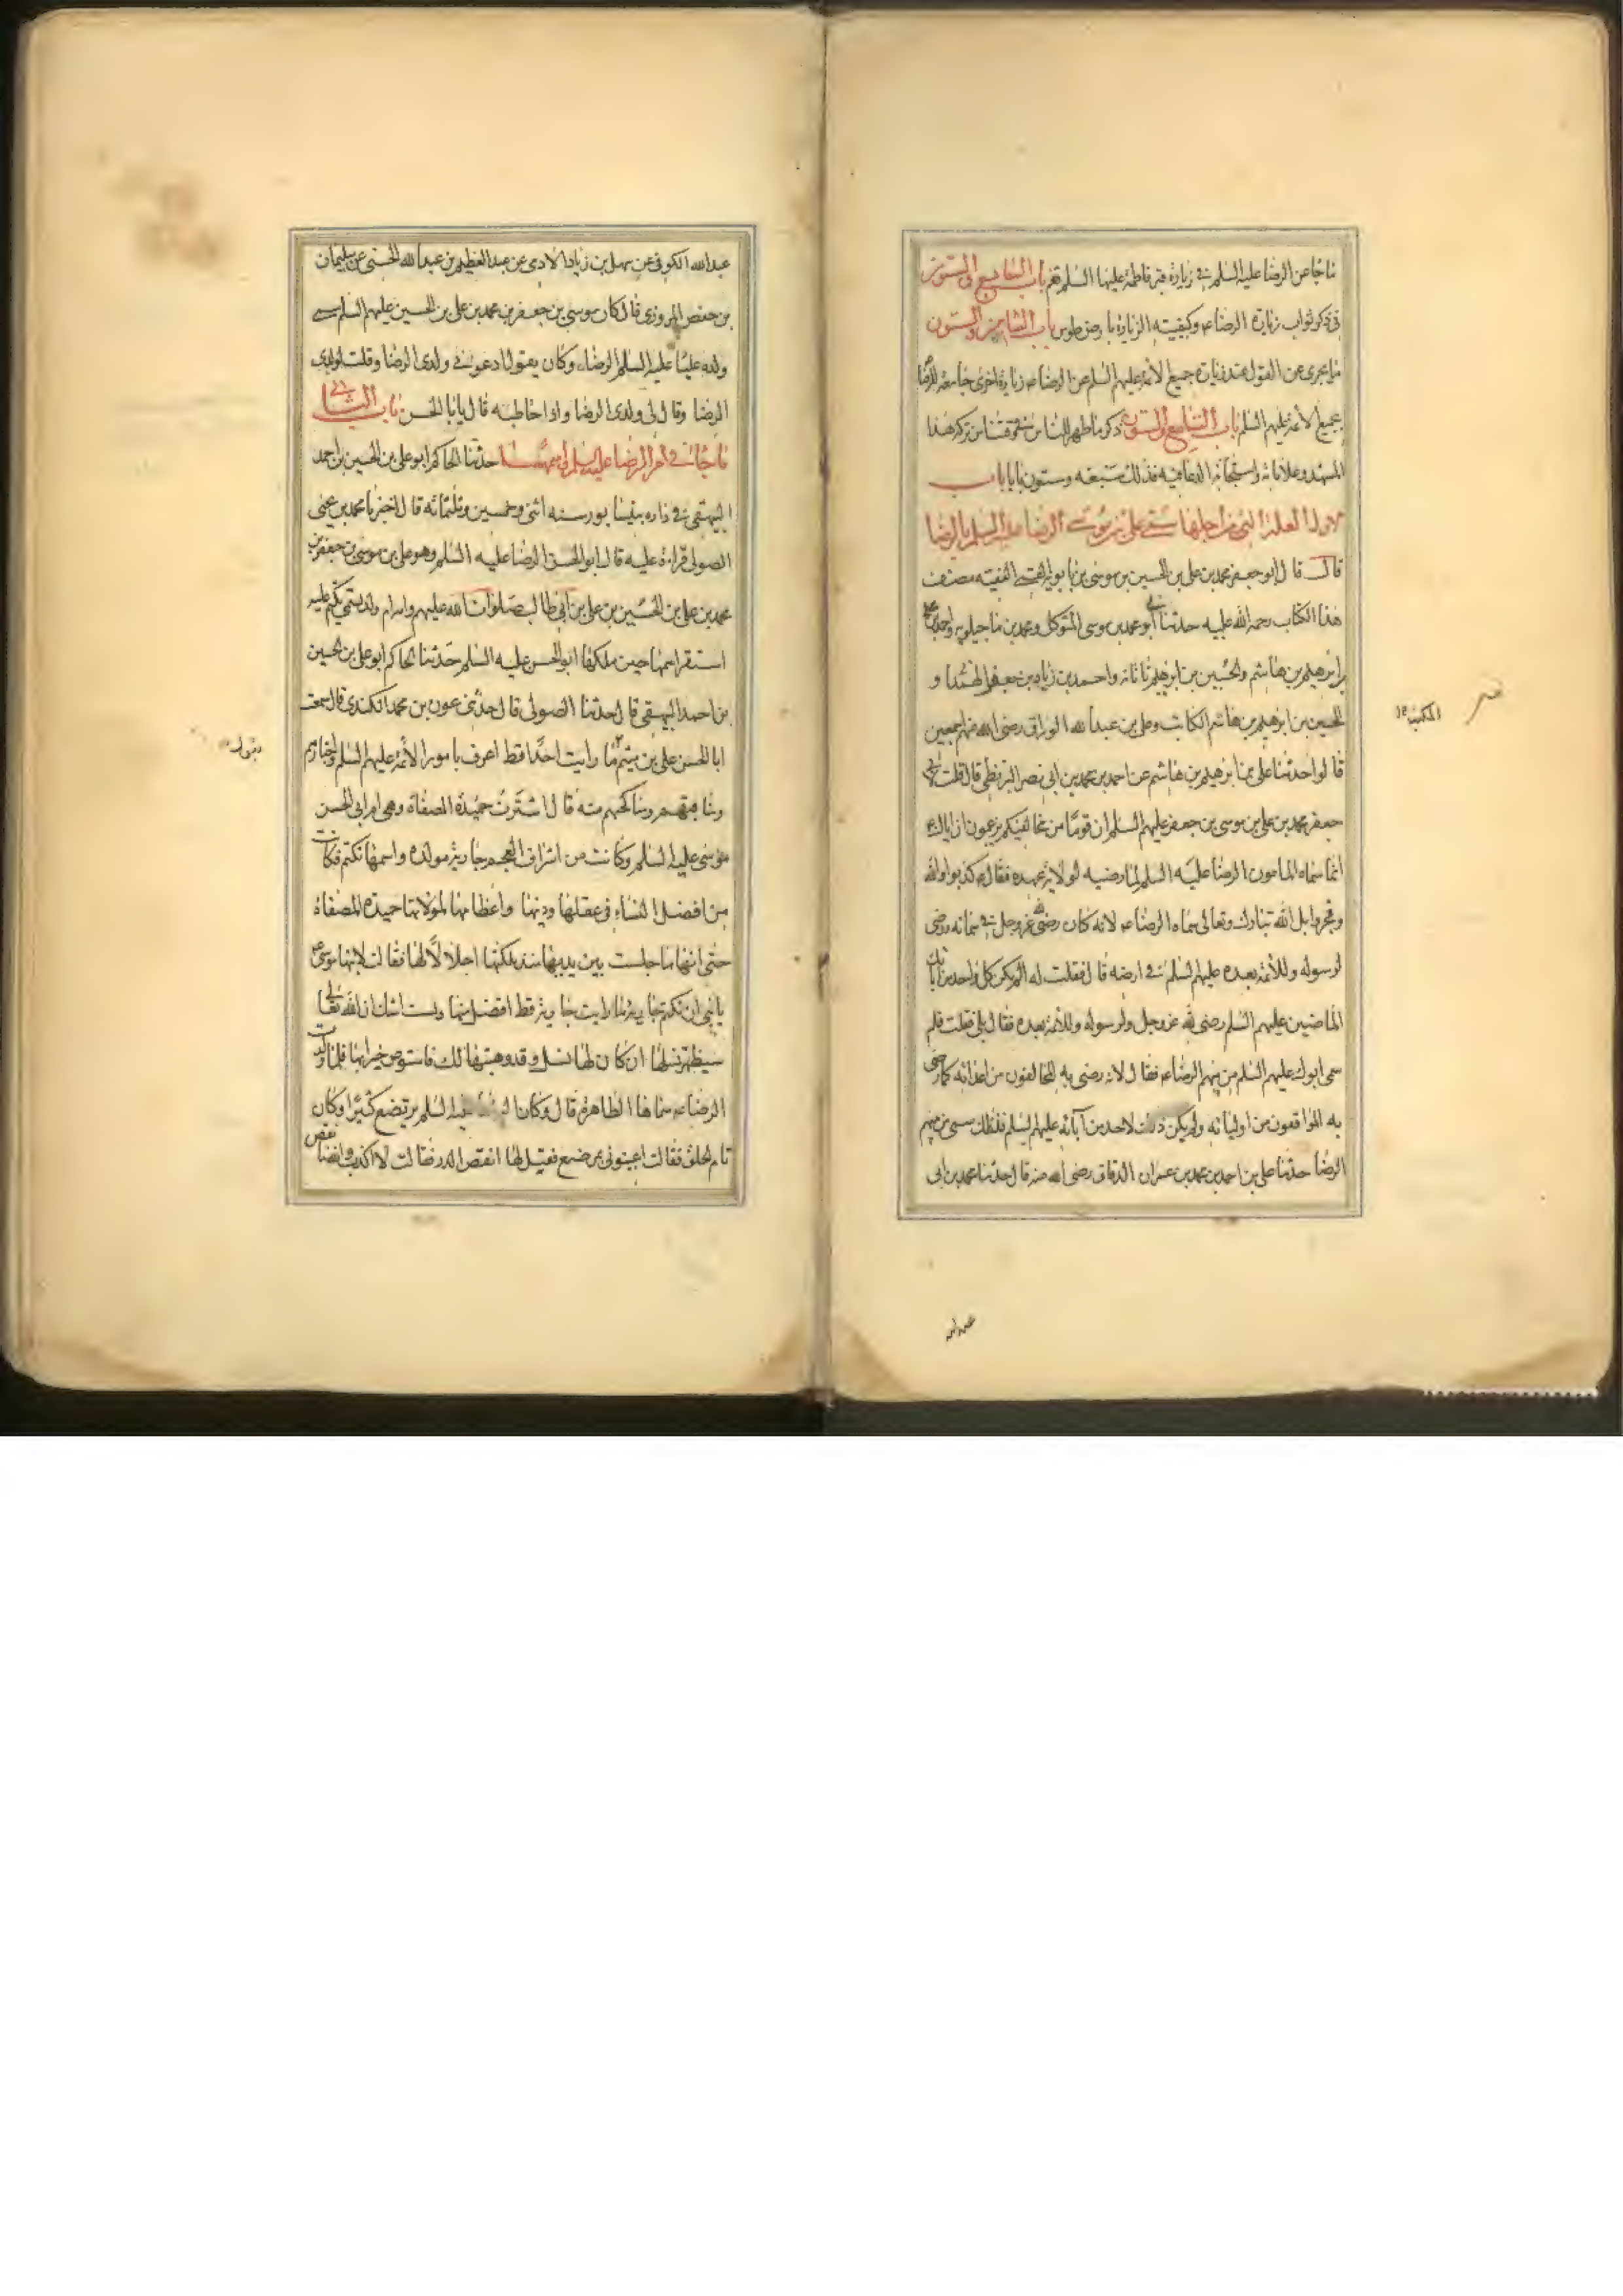 ما جاء عن الرضا عليه السلم في زيارة قبر فاطمة عليها السلم بقم باب السابع والستون
في ذكر ثواب زيارة الرضا عم وكيفيته الزيارة بارض طوس باب الثامن والستون
ما يجرى من القول عند زيارة جميع الائمة عليهم السلم عن الرضا عم زيارة اخرى جامعة للرضا
وجميع الائمة عليهم السلم باب التاسع والستون ذكر ما ظهر للناس في وقتنا من بركة هذا
المشهد وعلاماته واستجابة الدعا فيه فذلك تسعه وستون بابا باب
الاول العلة التي من اجلها سمي علي بن موسى الرضا عليه السلم بالرضا
قال قال ابو جعفر محمد بن علي بن الحسين بن موسى بن بابويه القمي الفقيه مصنف
هذا الكتاب رحمة الله عليه حدثنا ابي و محمد بن موسى المتوكل ومحمد بن ماجيلويه واحمد بن علي
بن ابرهيم بن هاشم والحسين بن ابرهيم ناتانه واحمد بن زياد بن جعفر الهمدا و
الحسين بن ابرهيم بن هاشم الكاتب وعلي بن عبدالله الوراق رضي الله عنهم اجمعين
قالوا حدثنا علي بن ابرهيم بن هاشم عن احمد بن محمد بن ابي نصر البزنطي قال قلت لابي
جعفر محمد بن علي بن موسى بن جعفر عليهم السلم ان قوما من مخالفيكم يزعمون ان اباك
انما سماه المامون الرضا عليه السلم لما رضيه لولاية عهده فقال كذبوا والله
وفجروا بل الله تبارك وتعالى سماه الرضا عم لانه كان رضي لله عز وجل في سمائه ورضي
لرسوله وللائمة بعده عليهم السلم في ارضه قال فقلت له الم يكن كل واحد من آبائك
الماضين عليهم السلم رضي لله عز وجل ولرسوله وللائمة بعده فقال بلى فقلت فلم
سمى ابوك عليهم السلم من بينهم الرضا عم فقال لانه رضي به المخالفون من اعدائه كما رضي
به الموافقون من اوليائه ولم يكن ذلك لاحد من آبائه عليهم السلم فلذلك سمي من بينهم
الرضا حدثنا علي بن احمد بن محمد بن عمران الدقاق رضي الله عنه قال حدثنا محمد بن ابي
المكتب
عبدالله
عبدالله الكوفي عن سهل بن زياد الادمي عن عبد العظيم بن عبدالله الحسني عن سليمان
بن حفص المروزي قال كان موسى بن جعفر بن محمد بن علي بن الحسين عليهم السلم سمى
ولده عليا عليه السلم الرضا وكان يقول ادعوا لي ولدي الرضا وقلت لولدي
الرضا وقال لي ولدي الرضا واذا خاطبه قال يا ابا الحسن باب الثاني
ما جاء في ام الرضا عليه السلم واسمها حدثنا الحاكم ابو علي بن الحسين بن احمد
البيهقي في داره بنيسابور سنه اثني وخمسين وثلثمائه قال اخبرنا محمد بن يحيى
الصولي قراءة عليه قال ابو الحسن الرضا عليه السلم وهو علي بن موسى بن جعفر بن
محمد بن علي بن الحسين بن علي بن ابي طالب صلوات الله عليهم وامه ام ولد تسمى تكتم عليه
استقر اسمها حين ملكها ابو الحسن عليه السلم حدثنا الحاكم ابو علي بن الحسين
بن احمد البيهقي قال حدثنا الصولي قال حدثني عون بن محمد الكندي قال سمعت
ابا الحسن علي بن ميثم ما رايت احدا قط اعرف بامور الائمة عليهم السلم واخبارهم
ومناكحهم منه قال اشترت حميدة المصفاة وهي ام ابي الحسن
موسى عليه السلم وكانت من اشراف العجم جارية مولده واسمها تكتم فكانت
من افضل النساء في عقلها ودينها واعظامها لمولاتها حميدة المصفاة
حتى انها ما جلست بين يديها منذ ملكتها اجلالا لها فقالت لابنها موسى
يا بني ان تكتم جارية ما رايت جارية قط افضل منها ولست اشك ان الله تعالى
سيظهر نسلها ان كان لها نسل وقد وهبتها لك فاستوص خيرا بها فلما ولدت
الرضا عم سماها الطاهرة قال وكان الرضا عليه السلم يرتضع كثيرا وكان
تام الخلق فقالت اعينوني بمرضع فقيل لها انقص الدر فقالت لا اكذب والله ما نقص
يقول